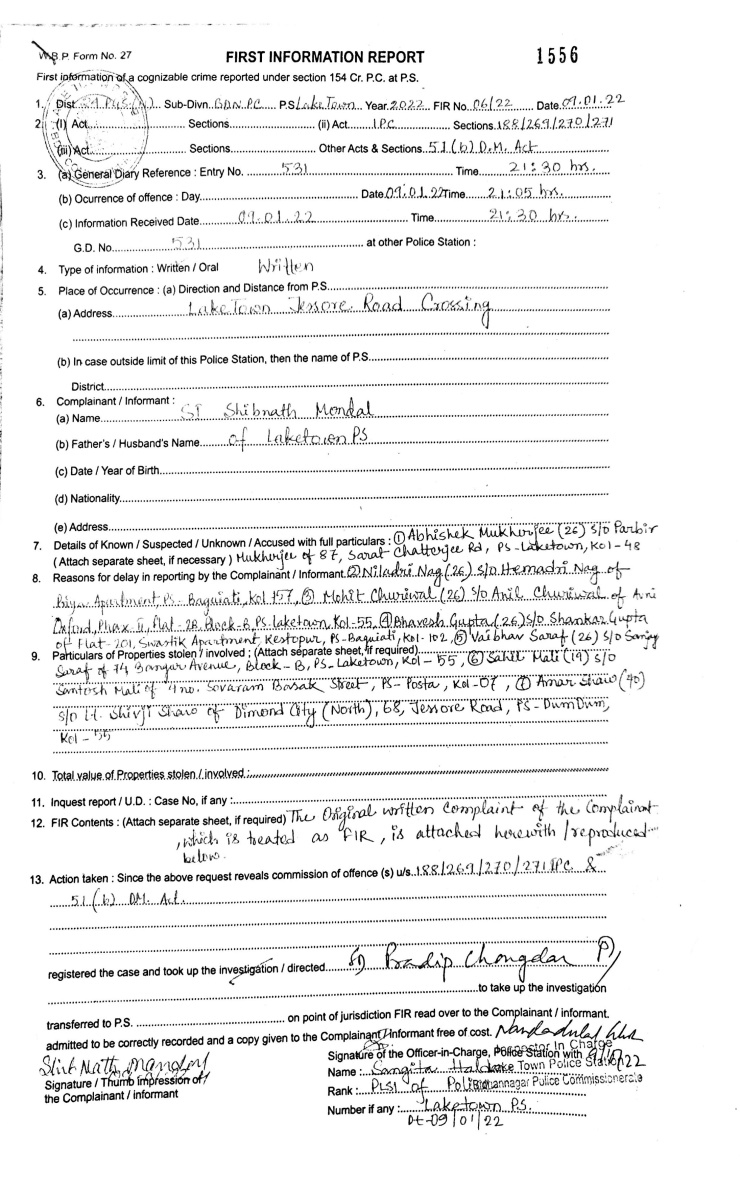 W.B.P. Form No. 27 FIRST INFORMATION REPORT 1556
First information of a cognizable crime reported under section 154 Cr. P.C. at P.S.
1. Dist. Sub-Divn. BDN.PC P.S Lake Town Year 2022 FIR No. 06/22 Date 09.01.22
2. (I) Act Sections (ii) Act IPC Sections 188/269/270/271
(iii) Act Sections Other Acts & Sections 51(b) D.M. Act
3. (a) General Diary Reference : Entry No. 531 Time 21:30 hrs.
(b) Ocurrence of offence : Day Date 09.01.22 Time 21:05 hrs.
(c) Information Received Date 09.01.22 Time 21:30 hrs.
G.D. No. 531 at other Police Station :
4. Type of information : Written / Oral Written
5. Place of Occurrence : (a) Direction and Distance from P.S.
(a) Address Lake Town Jessore Road Crossing
(b) In case outside limit of this Police Station, then the name of P.S.
District
6. Complainant / Informant :
(a) Name SI Shibnath Mondal
(b) Father's / Husband's Name of Laketown PS
(c) Date / Year of Birth
(d) Nationality
(e) Address
7. Details of Known / Suspected / Unknown / Accused with full particulars : ① Abhishek Mukherjee (26) S/O Parbir
( Attach separate sheet, if necessary ) Mukherjee of 87, Sarat Chatterjee Rd, PS-Laketown, Kol-48
8. Reasons for delay in reporting by the Complainant / Informant ② Niladri Nag (26) S/O Hemadri Nag of
Apartment PS- Baguiati, Kol 157, ③ Mohit Churiwal (26) S/O Anil Churiwal of Avni
Oxford, Phax II, Flat-2B, Block-B, PS-laketown, Kol-55, ④ Bhavesh Gupta (26) S/O Shankar Gupta
of Flat-201, Swastik Apartment, Kestopur, PS-Baguiati, Kol-102, ⑤ Vaibhav Saraf (26) S/O Sanjay
9. Particulars of Properties stolen / involved ; (Attach separate sheet, if required)
Saraf of 74 Bangur Avenue, Block-B, PS-Laketown, Kol-55, ⑥ Sahil Mali (19) S/O
Santosh Mali of 4 no. Sovaram Basak Street, PS-Posta, Kol-07, ⑦ Amar Shaw (40)
S/O Lt. Shivji Shaw of Dimond City (North), 68, Jessore Road, PS-DumDum,
Kol-55
10. Total value of Properties stolen / involved :
11. Inquest report / U.D. : Case No, if any :
12. FIR Contents : (Attach separate sheet, if required) The Original written complaint of the Complainant
, which is treated as FIR, is attached herewith / reproduced
below.
13. Action taken : Since the above request reveals commission of offence (s) u/s. 188/269/270/271 IPC &
51(b) DM. Act.
registered the case and took up the investigation / directed SI Pradip Chongdar
to take up the investigation
transferred to P.S. on point of jurisdiction FIR read over to the Complainant / informant.
admitted to be correctly recorded and a copy given to the Complainant / Informant free of cost.
Shib Nath Mondal Signature of the Officer-in-Charge, Police Station with
Inspector In Charge
Signature / Thumb impression of Name : Sangita Halder Lake Town Police Station
the Complainant / informant Rank : PLSI of Police Bidhannagar Police Commissionerate
Number if any : Laketown P.S.
Dt-09/01/22